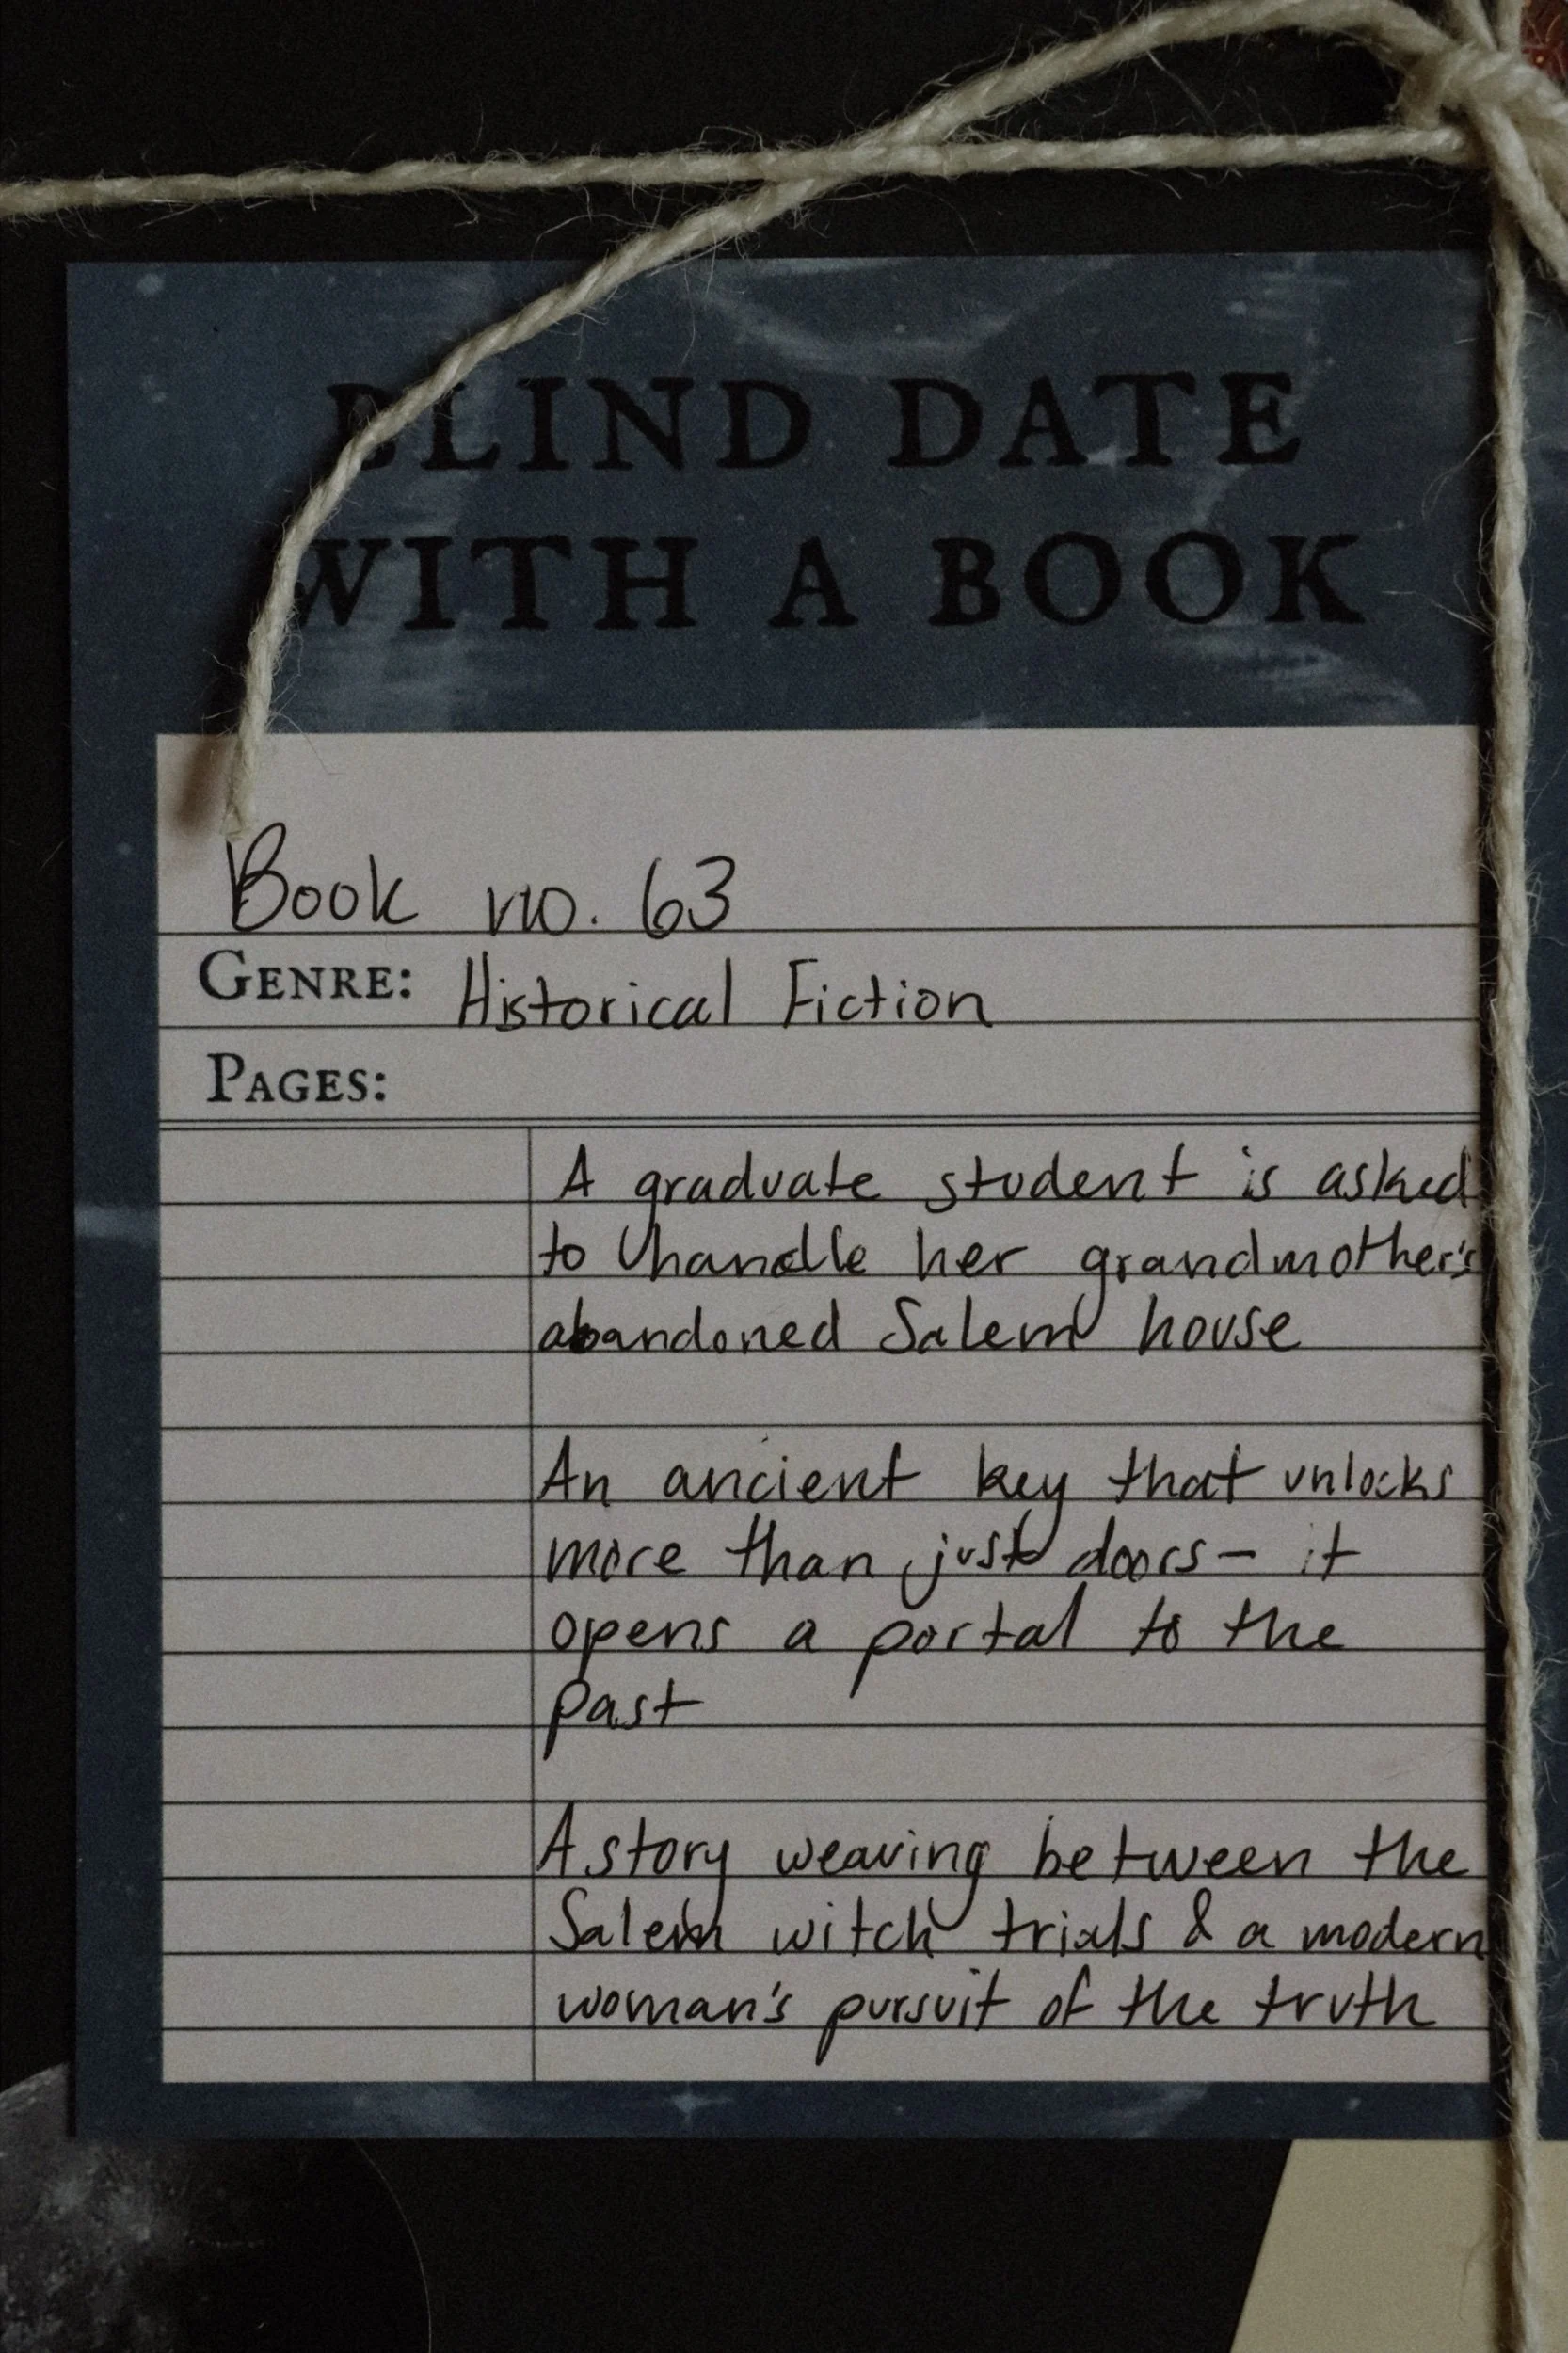 BLIND DATE
WITH A BOOK
Book no. 63
GENRE: Historical Fiction
PAGES:
A graduate student is asked
to handle her grandmother's
abandoned Salem house
An ancient key that unlocks
more than just doors – it
opens a portal to the
past
A story weaving between the
Salem witch trials & a modern
woman's pursuit of the truth